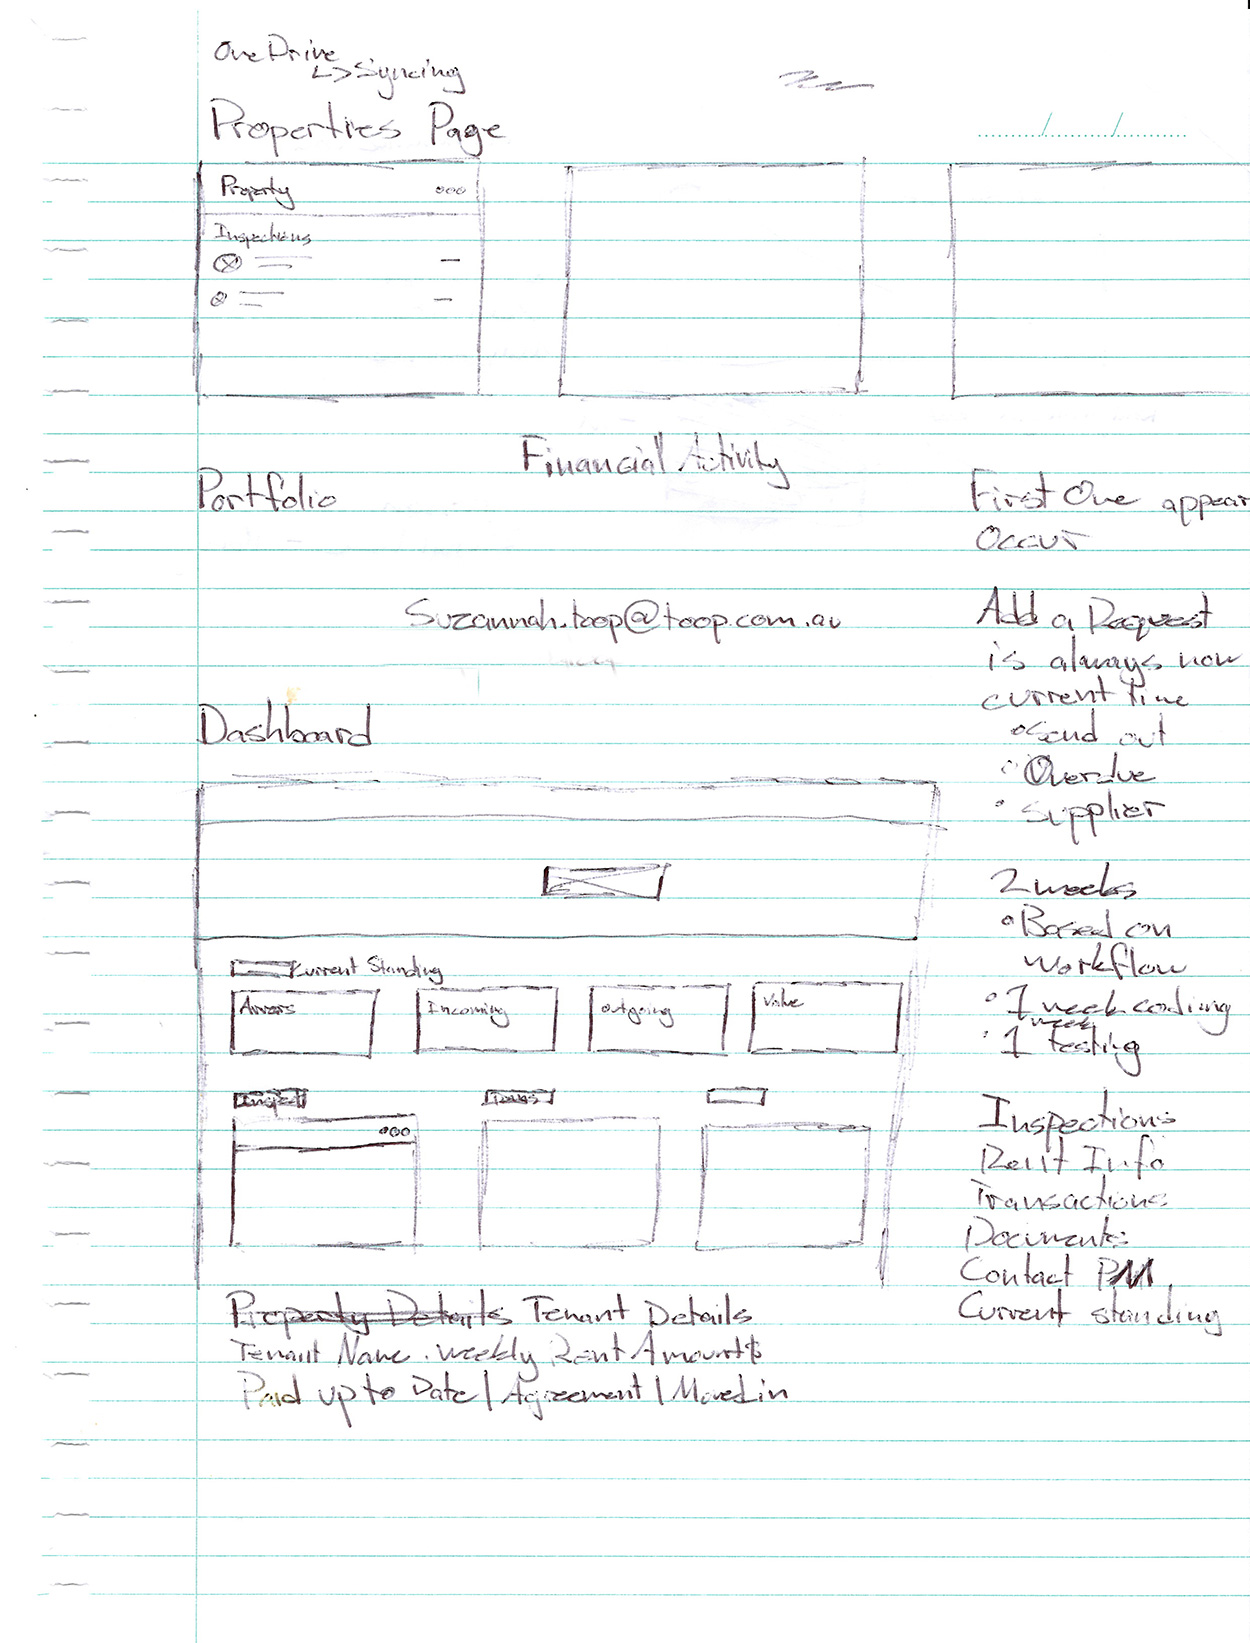 OneDrive
↳ Syncing
Properties Page
Property ooo
Inspections
Financial Activity
Portfolio
First One appear
Occur
Suzannah.toop@toop.com.au
Add a Request
is always now
current time
• Send out
• Overdue
• Supplier
Dashboard
2 weeks
• Based on
workflow
• 1 week coding
• 1 week testing
Current Standing
Arrears
Incoming
Outgoing
Value
Inspect
ooo
Inspections
Rent Info
Transactions
Documents
Contact PM
Current standing
Property Details Tenant Details
Tenant Name . Weekly Rent Amount $
Paid up to Date | Agreement | Moved in